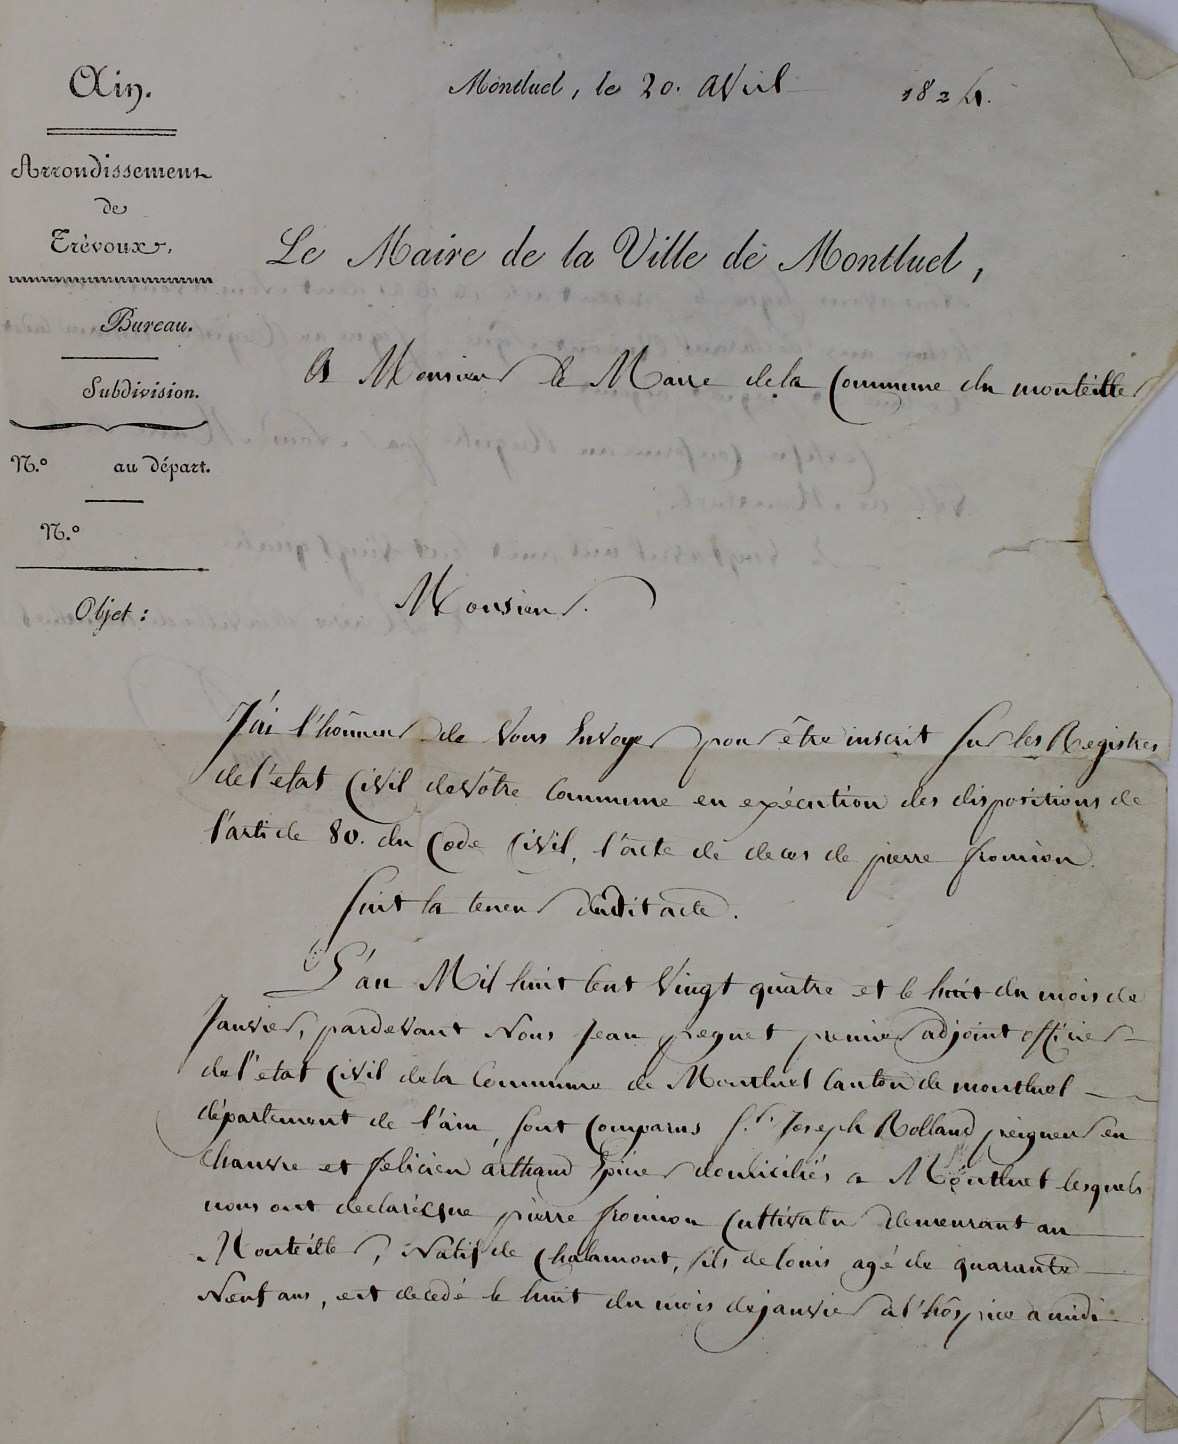 Ain.
Arrondissement
de
Trévoux.
Bureau.
Subdivision.
N.° au départ.
N.°
Objet :
Montluel, le 20. avril 1824.
Le Maire de la Ville de Montluel,
A Monsieur le Maire de la Commune du monteillier
Monsieur.
J'ai l'hônneur de Vous Envoyer pour être inscrit sur les Registres
de l'etat Civil de vôtre Commune en exécution des dispositions de
l'article 80. du Code Civil, l'acte de deces de pierre fromion
Suit la teneur dudit acte.
L'an Mil huit Cent Vingt quatre et le huit du mois de
Janvier, pardevant Nous Jean preguet premier adjoint officier
de l'etat Civil de la Commune de Montluel Canton de montluel
département de l'ain, sont Comparus S.r Joseph Rolland peigneur en
Chanvre et felicien arthaud Epicier domiciliés a Montluel lesquels
nous ont declaré que pierre fromion Cultivateur demeurant au
Monteillier, Natif de Chalamont, fils de louis agé de quarante
Neuf ans, est decedé le huit du mois de janvier à l'hôspice a midi